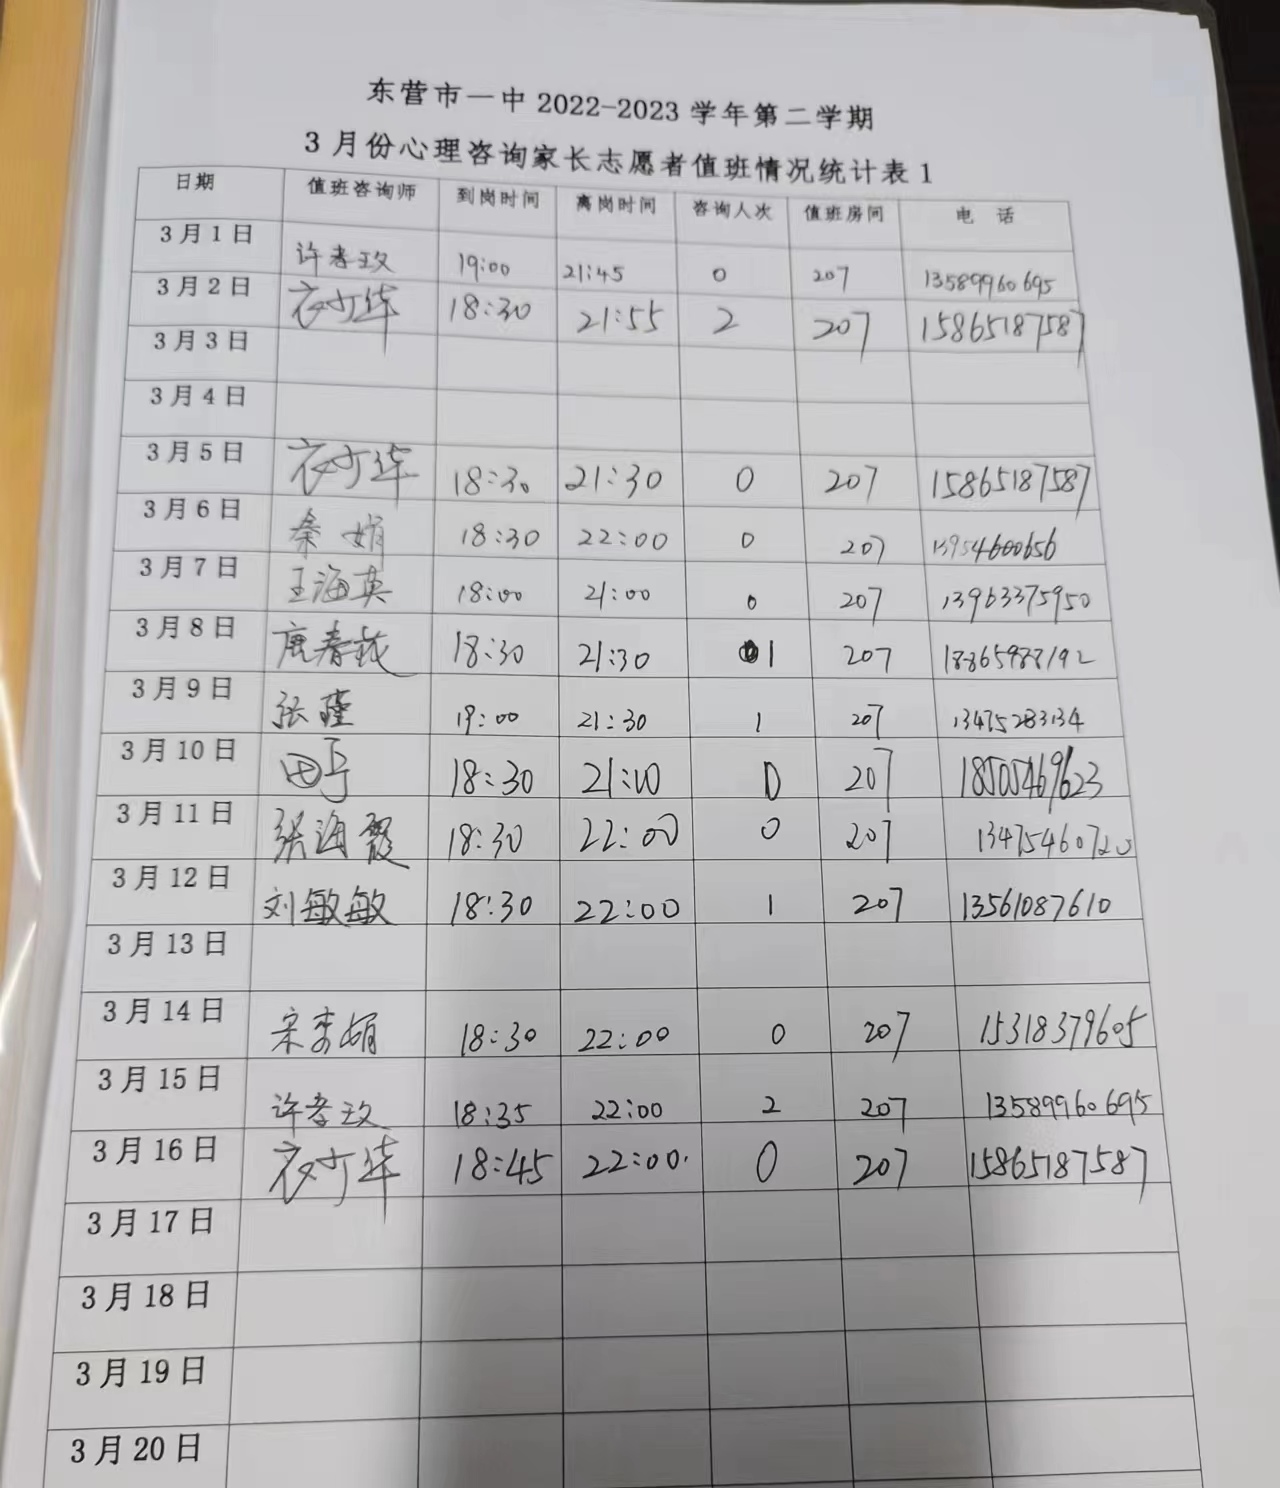 东营市一中 2022-2023 学年第二学期
3 月份心理咨询家长志愿者值班情况统计表 1
日期 值班咨询师 到岗时间 离岗时间 咨询人次 值班房间 电 话
3 月 1 日 许孝玫 19:00 21:45 0 207 13589960695
3 月 2 日 衣少华 18:30 21:55 2 207 15865187587
3 月 3 日
3 月 4 日
3 月 5 日 衣少华 18:30 21:30 0 207 15865187587
3 月 6 日 秦娟 18:30 22:00 0 207 13954600656
3 月 7 日 王海英 18:00 21:00 0 207 13963375950
3 月 8 日 唐春 18:30 21:30 1 207 18865988192
3 月 9 日 张瑾 19:00 21:30 1 207 13475283134
3 月 10 日 田 18:30 21:00 0 207 18505469623
3 月 11 日 张海霞 18:30 22:00 0 207 13475460720
3 月 12 日 刘敏敏 18:30 22:00 1 207 13561087610
3 月 13 日
3 月 14 日 宋娟 18:30 22:00 0 207 15318379605
3 月 15 日 许孝玫 18:35 22:00 2 207 13589960695
3 月 16 日 衣少华 18:45 22:00. 0 207 15865187587
3 月 17 日
3 月 18 日
3 月 19 日
3 月 20 日